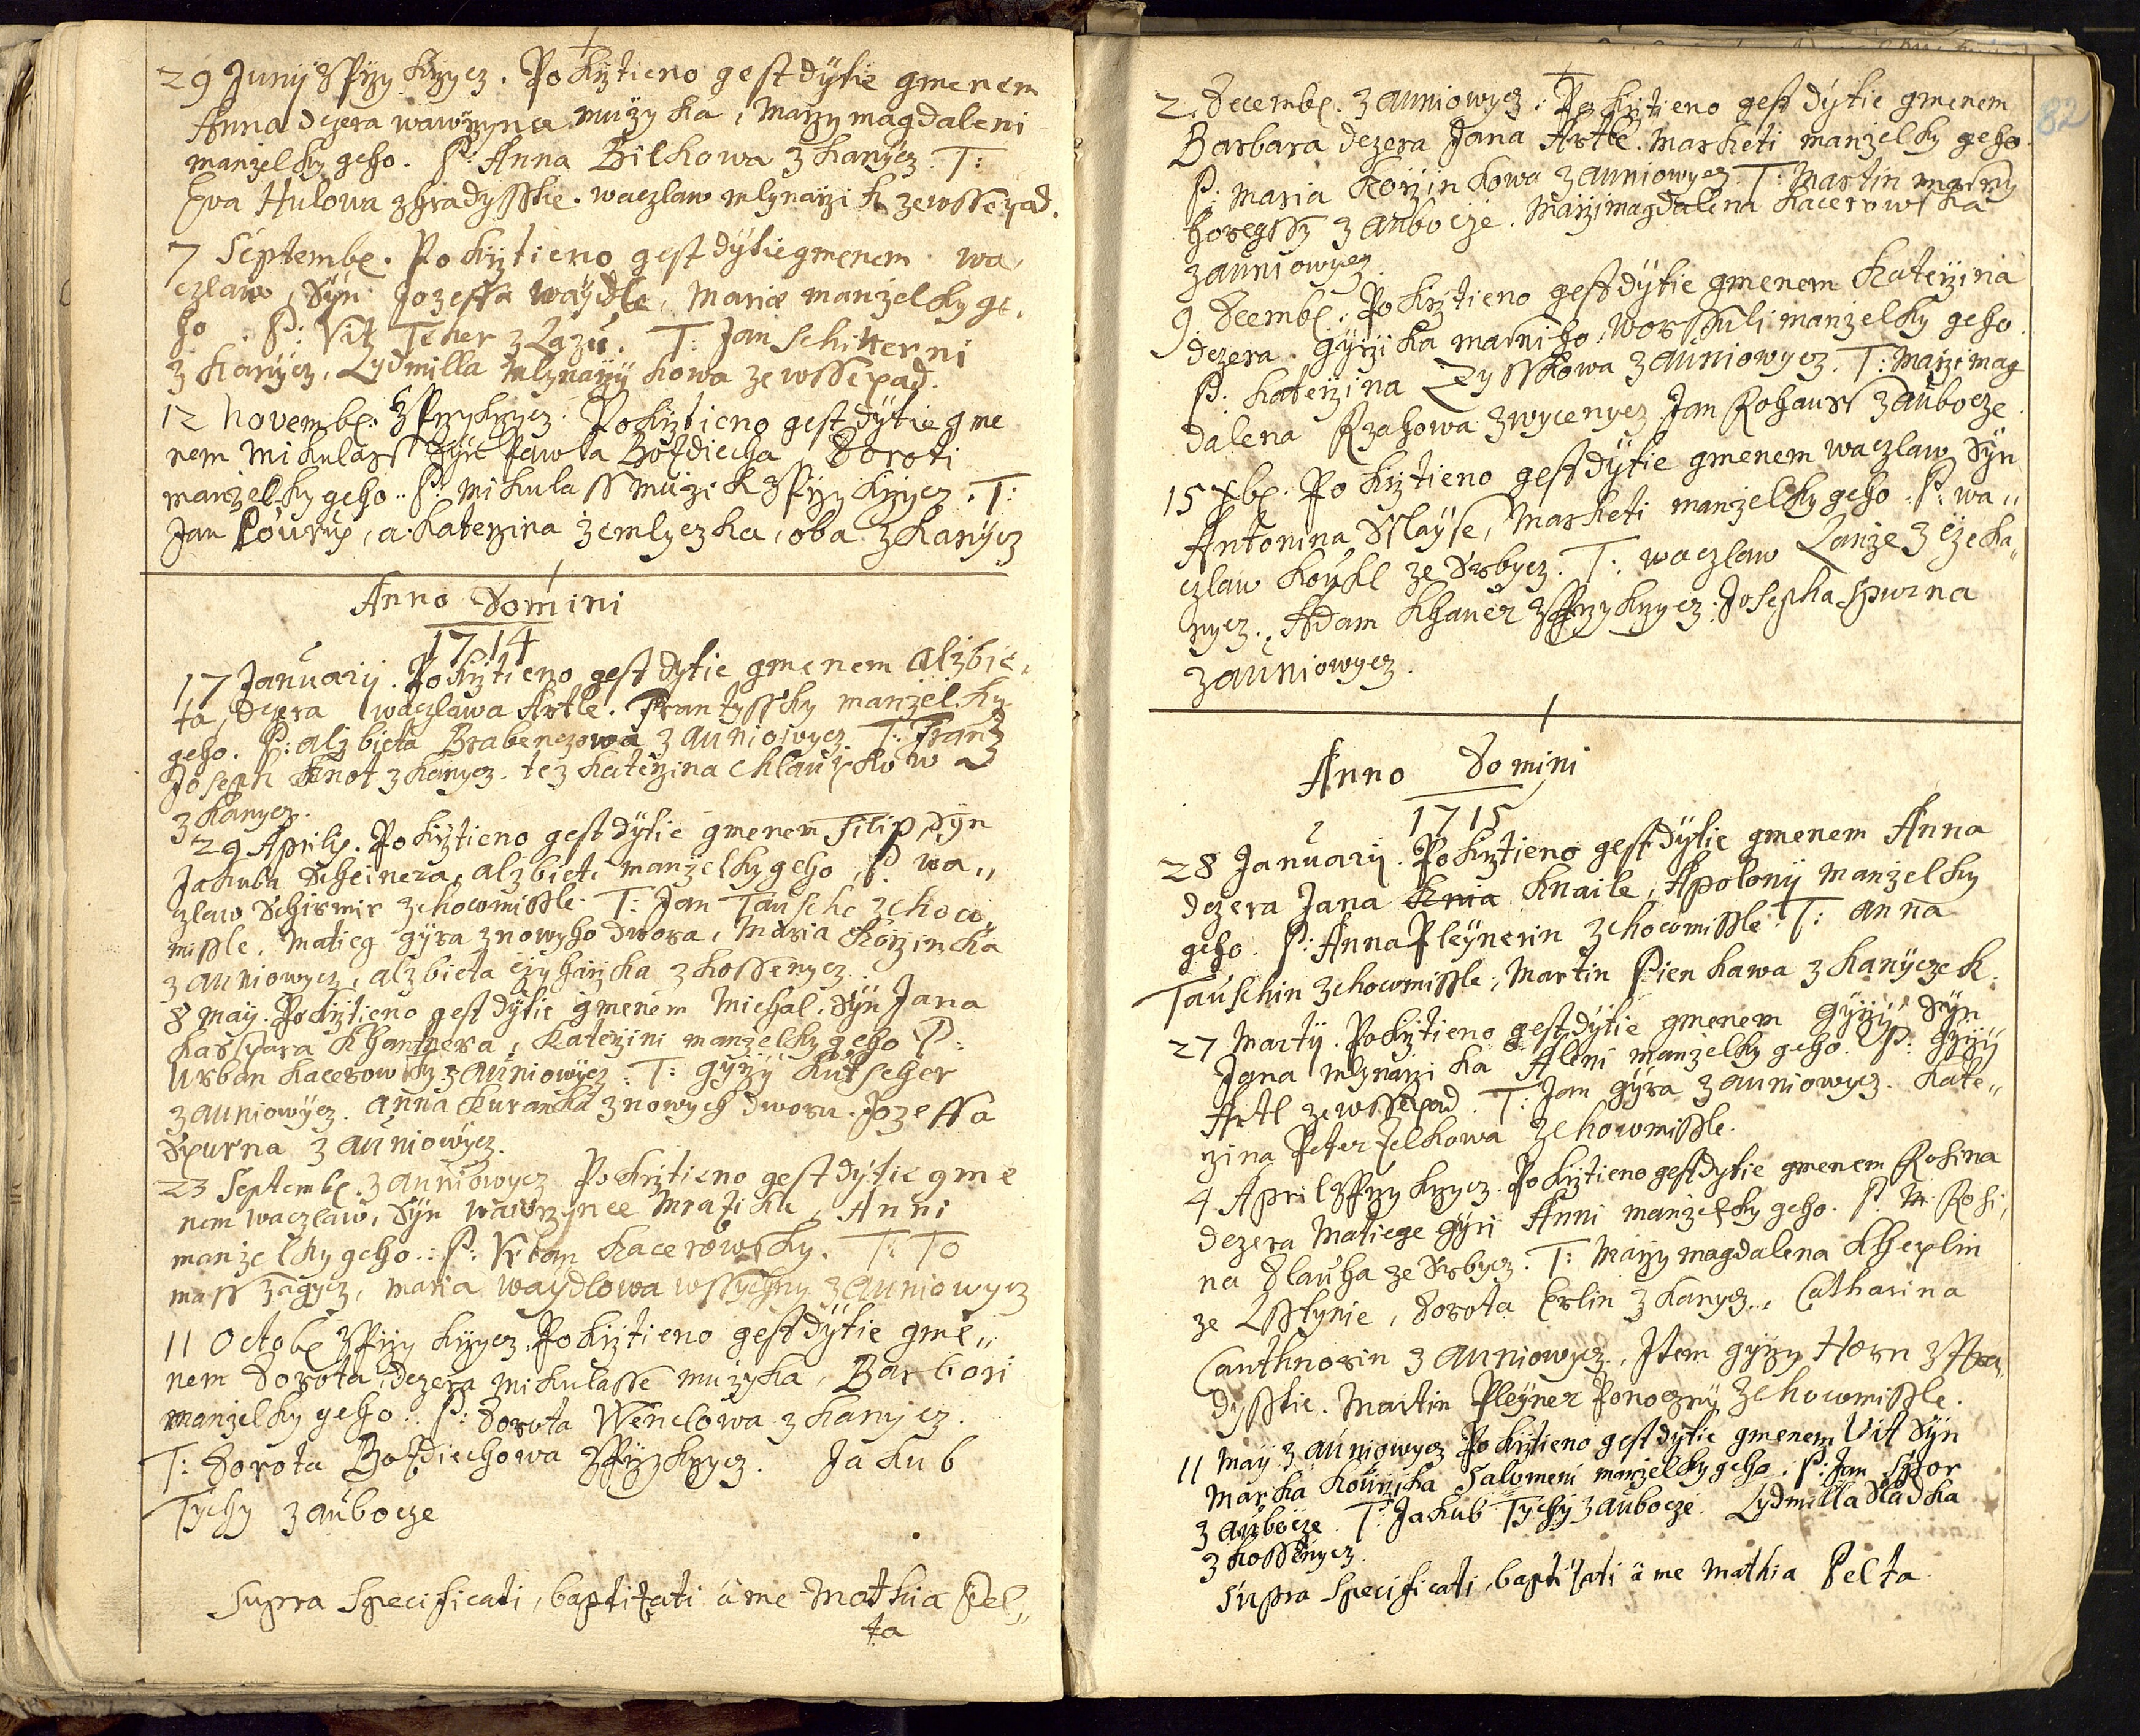 29 Junij z Przy krzycz. Pokrztieno gest dýtie gmenem
Anna dczera wawrzynce mužýka, Marzy magdaleni
manżelky geho. P: Anna Bilkowa z Kanýcz. T:
Ewa Hulowa z hradysstie. waczlaw mlynarzik ze wssepad.
7 Septembr. Pokrztieno gest dýtie gmenem wa,
czlaw, Sýn Jozeffa waýdle, Marie manżelky ge,
ho. P: Vitz Teher z Lazu. T: Jan Schitterni
z Kanýcz, Lydmilla mlynarzý kowa ze wssepad.
12 Novembr: z Przykrzycz. Pokrztieno gest dýtie gme
nem Mikulass Sýn Pawla Bozdiecha, Doroti
manżelky geho. P: mikulass mużik z Przykrzycz. T:
Jan , a Katerzina żemlyczka, oba z Kanýcz
Anno Domini
1714
17 January. Pokrztieno gest dytie gmenem alżbie,
ta, dczera waczlawa Artle. Frantyssky manżelky
geho. P: alżbieta Brabenczowa z auniowycz. T: Franz
Joseph Knot z kanycz. téz Katerzina
z Kanycz.
29 Aprilis. Pokrztieno gest dýtie gmenem Filip, Sýn
Jakuba Scheinera, alżbieti manżelky geho, P. wa,,
czlaw Schirmir z chocomissle. T: Jan Tausche z choco
missle. Matieg gýra z nowýho dwora, Maria Korzinka
z auniowycz, alżbieta z kossenycz.
8 May. Pokrztieno gest dýtie gmenem Michal. Sýn Jana
Kasspara Khantnera, Katerzini manżelky geho P:
Urban Kacerowský z auniowýcz. T: gyrzý Kutscher
z auniowýcz. anna Kuranka z nowých dworu. Jozeffa
Spurna z auniowýcz.
23 Septembr. z auniowycz Pokrztieno gest dýtie gme
nem waczlaw, Sýn wawrzynce Mrazika, Anni
manżelky geho.: P: Urban Kacerowský. T: To
mass zagýcz, maria waýdlowa wssychny z auniowycz
11 Octobr z Przy krzycz. Pokrztieno gest dýtie gme,,
nem Dorota, dczera mikulasse mużýka, Barbori
manżelky geho. P: Dorota Wenclowa z kanýcz.
T: Dorota Bozdiechowa z Przykrzycz. Jakub
Tychy z aubocze
Supra specificati, baptizati á me Mathia Pel,,
ta
82
2. Decembr. z auniowycz. Pokrztieno gest dýtie gmenem
Barbara dczera Jana Artle. Marketi manżelky geho.
P: Maria Korzinkowa z auniowycz. T: Martin marný
horegssy z aubocze. Marzimagdalena Kacerowska
z auniowycz
9 Decembr. Pokrztieno gest dýtie gmenem Katerzina
dczera gýrzika marniho, worssuli manżelky geho.
P. Katerzina Zysskowa z auniowycz. T: Marzi mag
dalena Rzahowa z wycenycz Jan Rohauss z aubocze
15 Xbr. Pokrztieno gest dýtie gmenem waczlaw, Sýn
Antonina Slaýse, Marketi manżelky geho. P: wa,,
czlaw Koukl ze Srbycz. T: waczlaw Lanże z
nycz. Adam Khaner z Przykrzycz. Josepha Spurna
z auniowycz.
Anno Domini
1715
28 January. Pokrztieno gest dýtie gmenem Anna
dczera Jana Knia Knaile, Apolonÿ manżelky
geho. P: Anna Pleýnerin z chocomissle. T: anna
Tauschin z chocomissle, Martin Pienkawa z Kanýczek.
27 Martÿ. Pokrztieno gest dýtie gmenem gýrzý Sýn
Jana mlynarzika Aleni manżelky geho. P: gýrzý
Artl ze wssepad. T: Jan gýra z auniowycz. Kate,,
rzina Peterzelkowa z chocomissle.
4 April z Przykrzycz. Pokrztieno gest dytie gmenem Rosina
dczera Matiege gýri Anni manżelky geho. P. Rosi,
na Dlauha ze Srbycz. T: Marzy magdalena Kheplin
ze Lsstynie, Dorota Erlin z Kanycz., Catharina
Canthnorin z auniowycz., Item gýrzy Horn z Hra,
dysstie. Martin Pleýner Ponoczný z chocomissle.
11 Maý z auniowycz Pokrztieno gest dýtie gmenem Vit Sýn
Marka Kourzika Salomeni manżelky geho. P: Jan Spor
z aubocze. T: Jakub Tychý z aubocze. Lydmilla Sladka
z kossenycz.
Supra specificati, baptizati á me Mathia Pelta.